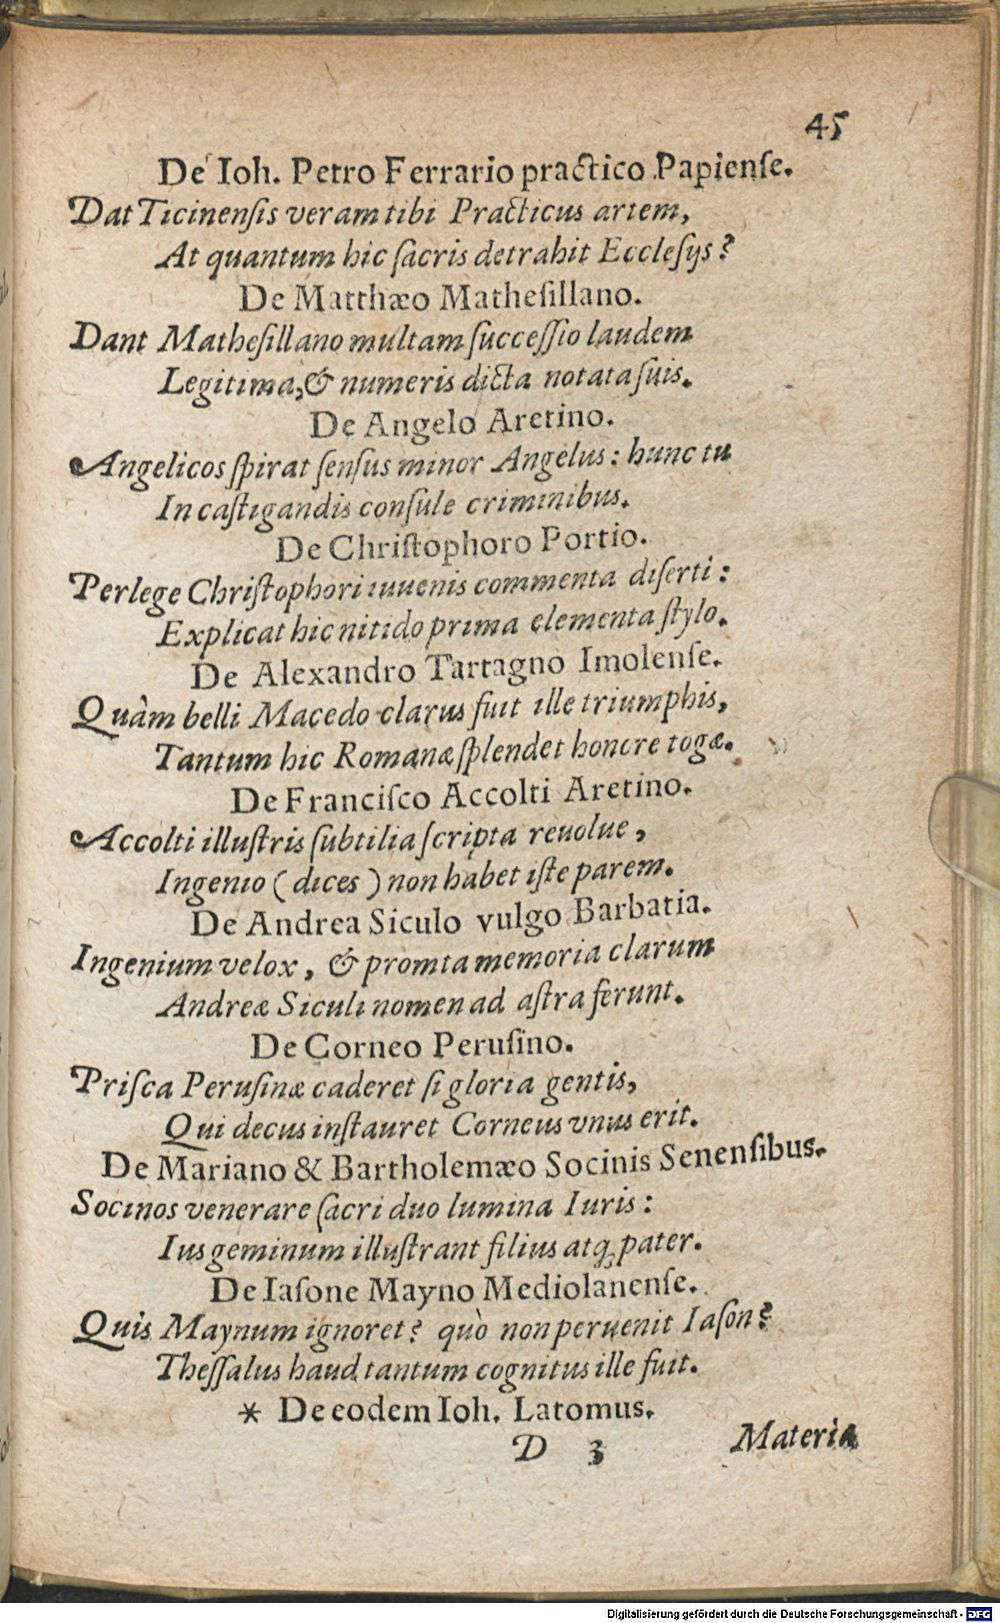 45
De Ioh. Petro Ferrario practico Papienſe.
Dat Ticinenſis veram tibi Practicus artem,
At quantum hic ſacris detrahit Eccleſijs?
De Matthæo Matheſillano.
Dant Matheſillano multam ſucceſſio laudem
Legitima, & numeris dicta notata ſuis.
De Angelo Aretino.
Angelicos ſpirat ſenſus minor Angelus: hunc tu
In caſtigandis conſule criminibus.
De Chriſtophoro Portio.
Perlege Chriſtophori iuuenis commenta diſerti:
Explicat hic nitido prima elementa ſtylo.
De Alexandro Tartagno Imolenſe.
Quàm belli Macedo clarus fuit ille triumphis,
Tantum hic Romanæ ſplendet honore togæ.
De Franciſco Accolti Aretino.
Accolti illuſtris ſubtilia ſcripta reuolue,
Ingenio (dices) non habet iſte parem.
De Andrea Siculo vulgo Barbatia.
Ingenium velox, & promta memoria clarum
Andreæ Siculi nomen ad aſtra ferunt.
De Corneo Peruſino.
Priſca Peruſinæ caderet ſi gloria gentis,
Qui decus inſtauret Corneus vnus erit.
De Mariano & Bartholemæo Socinis Senenſibus.
Socinos venerare ſacri duo lumina Iuris:
Ius geminum illuſtrant filius atq; pater.
De Iaſone Mayno Mediolanenſe.
Quis Maynum ignoret? quò non peruenit Iaſon?
Theſſalus haud tantum cognitus ille fuit.
* De eodem Ioh. Latomus.
D 3 Materia
Digitalisierung gefördert durch die Deutsche Forschungsgemeinschaft - DFG